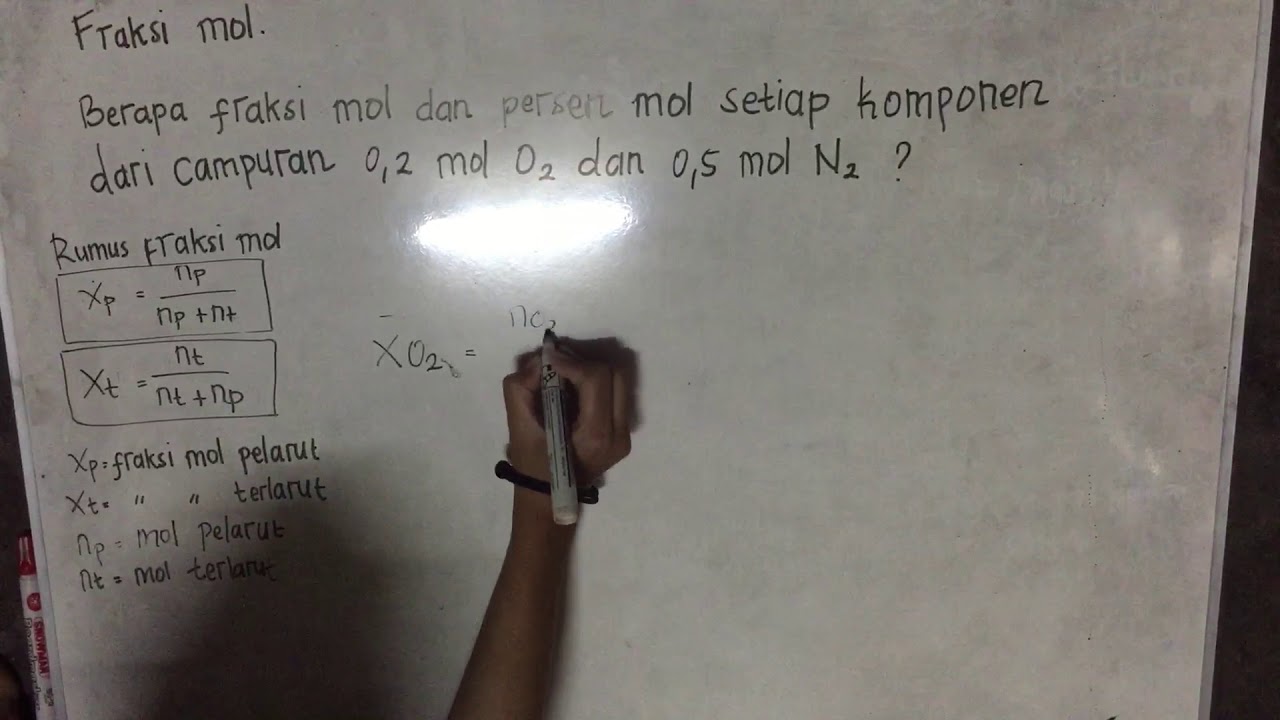 Fraksi mol.
Berapa fraksi mol dan persen mol setiap komponen
dari campuran 0,2 mol O₂ dan 0,5 mol N₂ ?
Rumus fraksi mol
Xp = np / np + nt
Xt = nt / nt + np
Xp = fraksi mol pelarut
Xt = " " terlarut
np = mol pelarut
nt = mol terlarut
XO₂ =
SNOWMAN